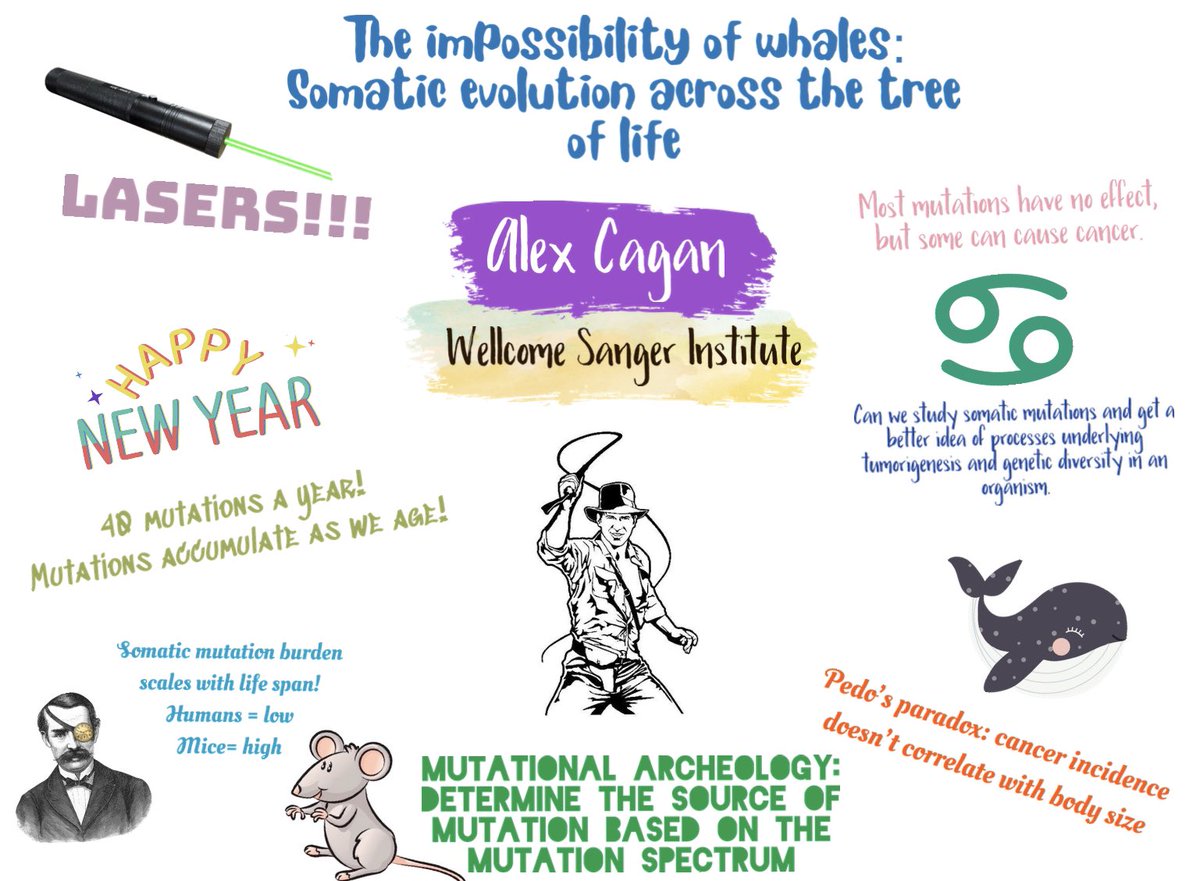 The impossibility of whales:
Somatic evolution across the tree
of life
LASERS!!!
Alex Cagan
Wellcome Sanger Institute
Most mutations have no effect,
but some can cause cancer.
HAPPY
NEW YEAR
40 mutations a year!
Mutations accumulate as we age!
Can we study somatic mutations and get a
better idea of processes underlying
tumorigenesis and genetic diversity in an
organism.
Somatic mutation burden
scales with life span!
Humans = low
Mice= high
Pedo's paradox: cancer incidence
doesn't correlate with body size
MUTATIONAL ARCHEOLOGY:
DETERMINE THE SOURCE OF
MUTATION BASED ON THE
MUTATION SPECTRUM